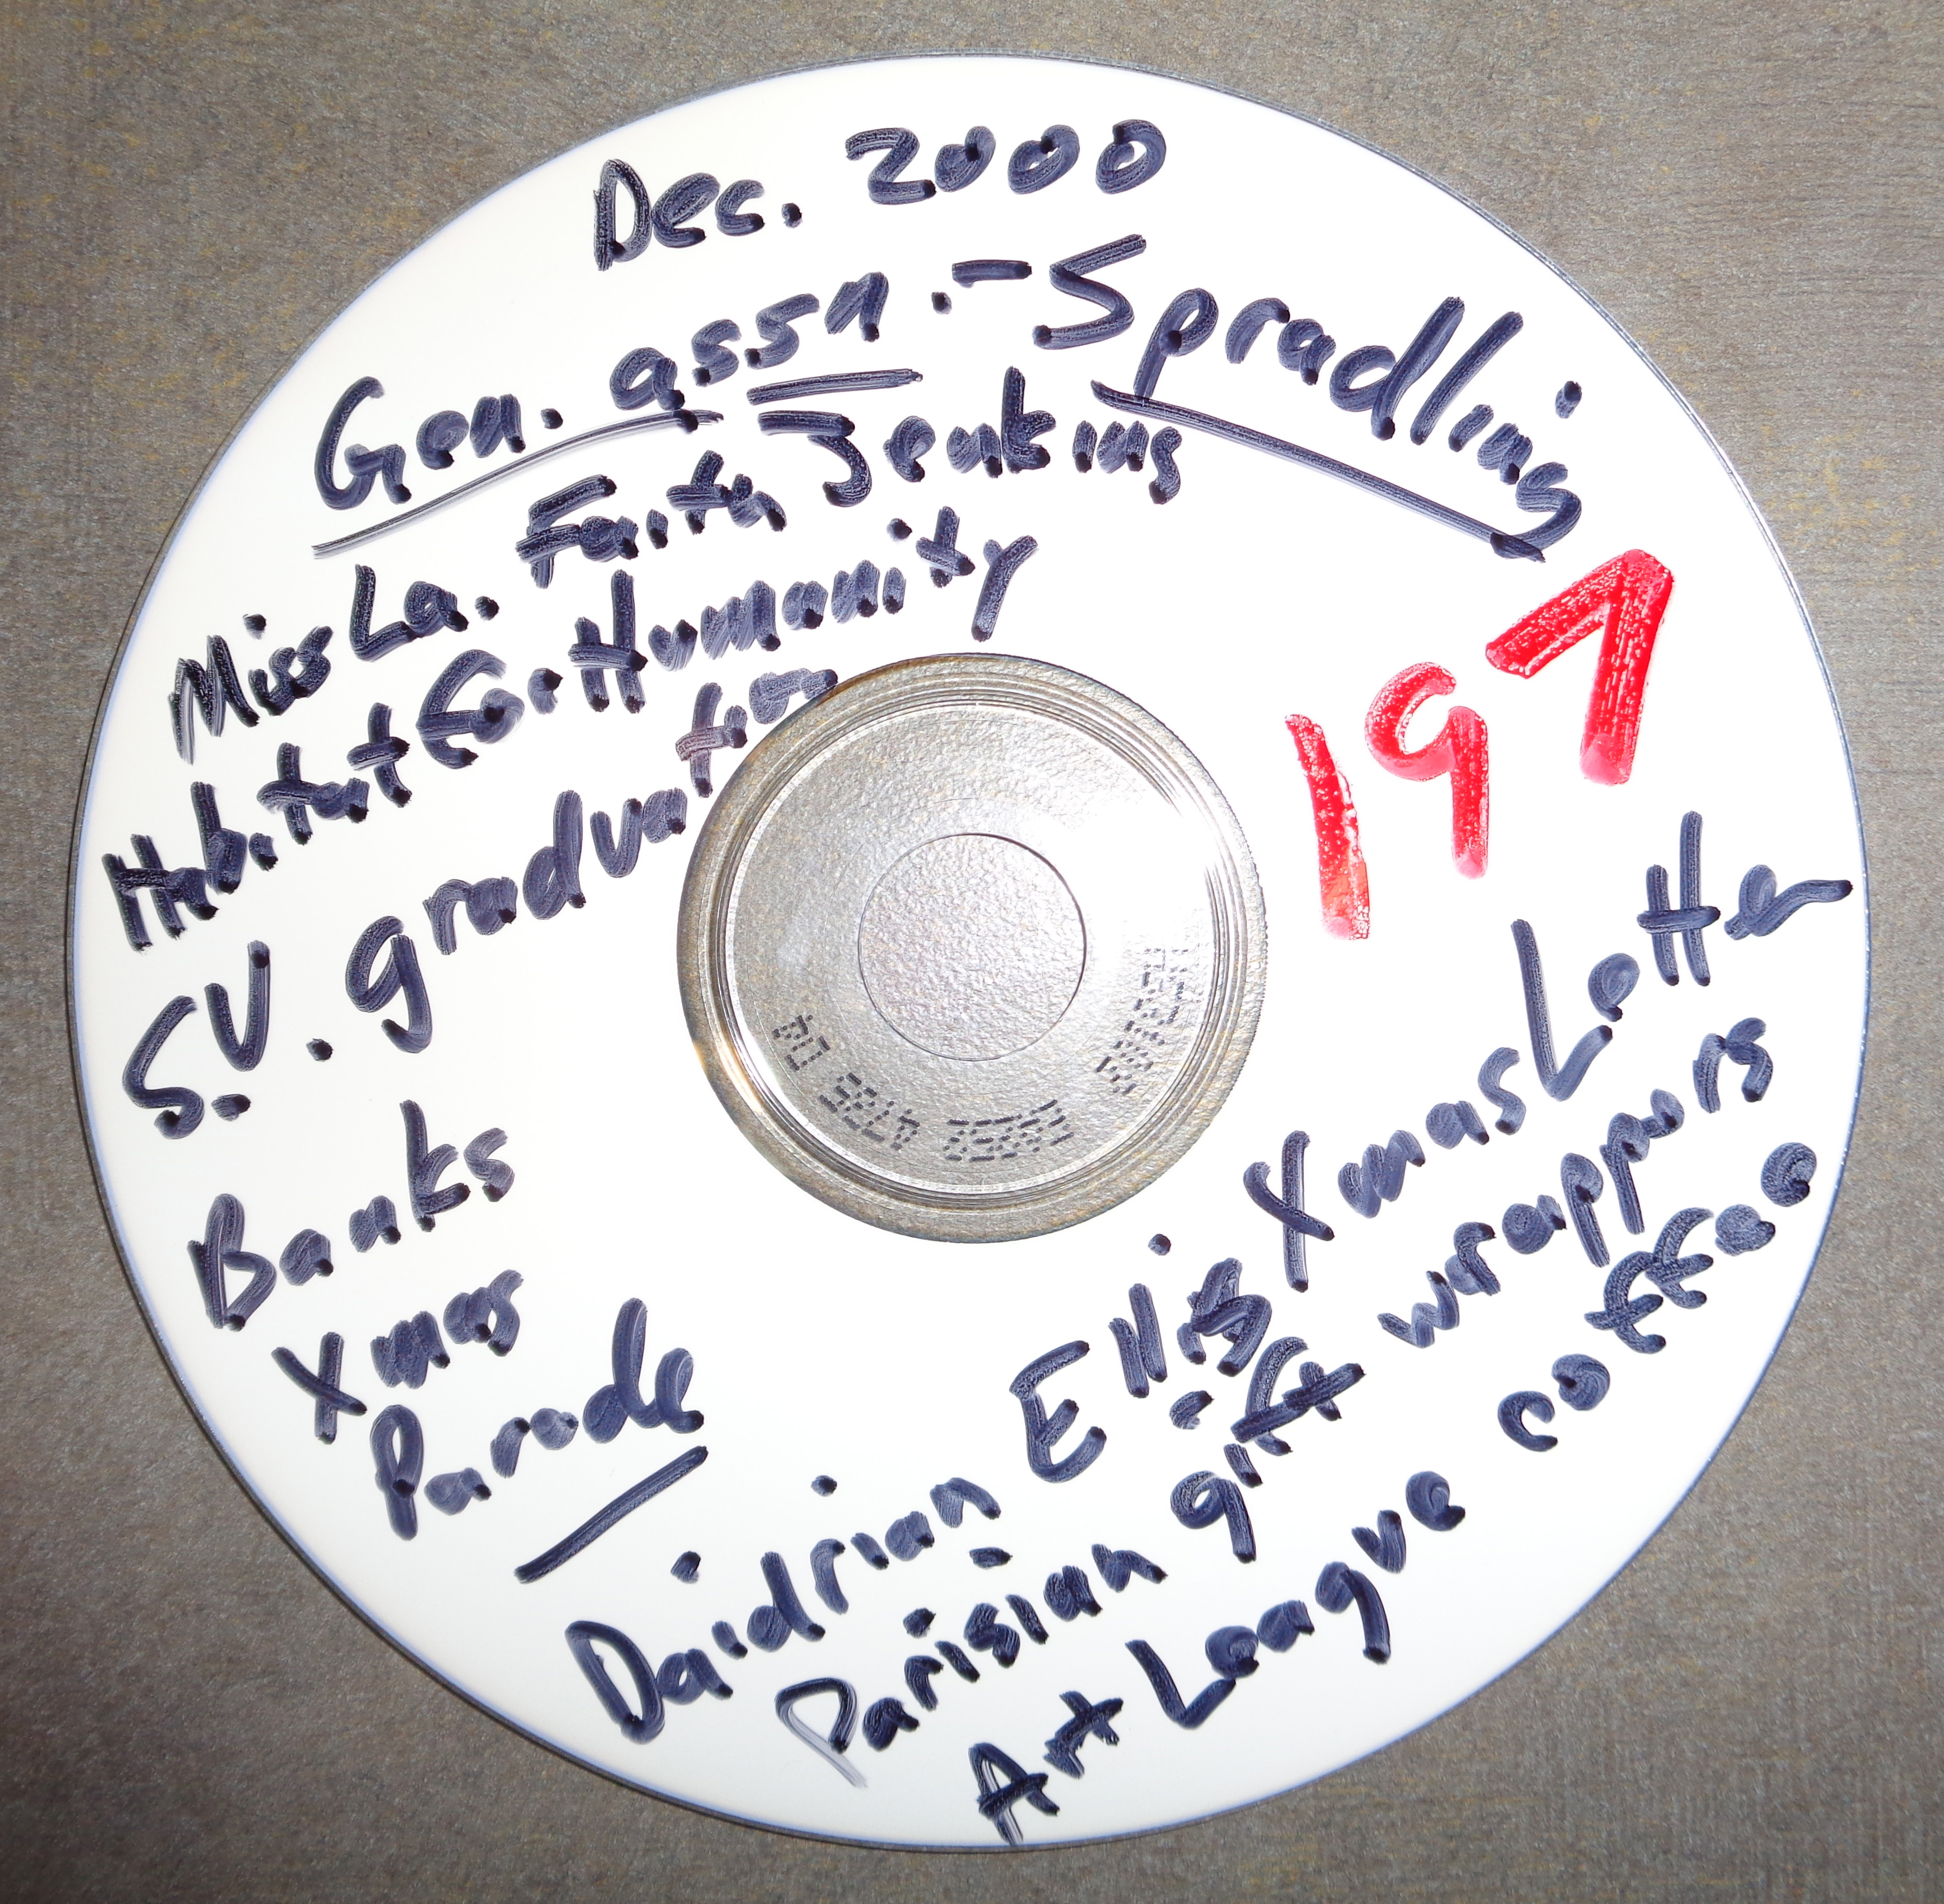 Dec. 2000
Gen. assn. - Spradling
Miss La. Faith Jenkins
Habitat For Humanity
S.U. graduation
Banks
Xmas
Parade
197
Daidrian Ellis Xmas Letter
Parisian gift wrappers
Art League coffee